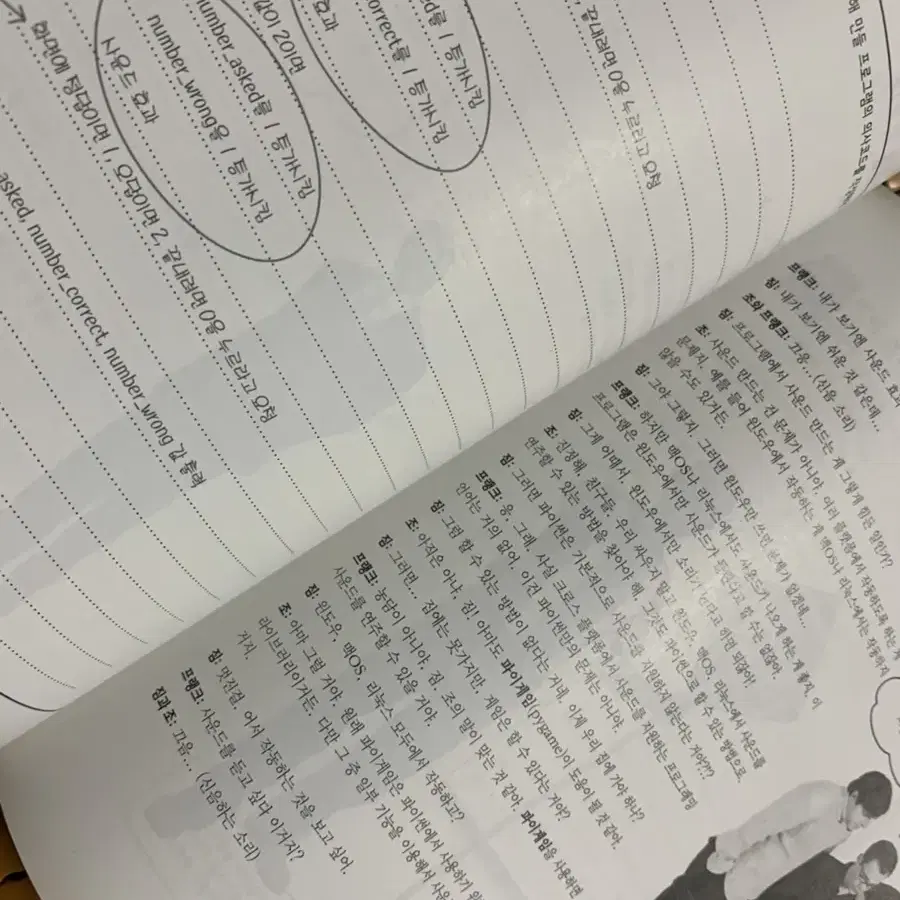 해 만들 프로그램의 의사코드를
끝내려면 0을 누르라고 요청
asked를 1 증가시킴
correct를 1 증가시킴
효과
값이 2이면
number_asked를 1 증가시킴
number_wrong을 1 증가시킴
사운드 효과
화면에 정답이면 1, 오답이면 2, 끝내려면 0을 누르라고 요청
asked, number_correct, number_wrong 값 출력
프랭크: 내가 보기엔 사운드 효과
짐: 내가 보기엔 쉬운 것 같은데...
조와 프랭크: 끄응... (신음 소리)
짐: 프로그램에서 사운드 만드는 게 그렇게 힘든 일인가??
조: 사운드 만드는 건 문제가 아니야. 여러 플랫폼에서 작동하도록 하는 게
문제지. 예를 들어 윈도우에서 작동하는 게 맥OS나 리눅스에서는 작동하지
않을 수도 있거든.
짐: 그야 그렇지. 그러면 윈도우만 쓰면 문제가 없겠네...
프랭크: 하지만 맥OS나 리눅스에서도 사운드가 나오게 하는 게 좋지. 이
프로그램은 윈도우에서만 사운드가 들린다고 할 수는 없잖아.
짐: 그게 어때서. 윈도우에서만 소리가 난다고 하면 되잖아!
조: 진정해, 친구들. 우리 싸우지 말고 윈도우, 맥OS, 리눅스에서 사운드를
연주할 수 있는 방법을 찾아야 해. 그것도 파이썬으로 할 수 있는 방법으로
짐: 그러면 파이썬은 기본적으로 사운드를 지원하지 않는다는 거야???
프랭크: 응, 그래. 사실 크로스 플랫폼에서 사운드를 지원하는 프로그래밍
언어는 거의 없어. 이건 파이썬만의 문제는 아니야.
짐: 그럼 할 수 있는 방법이 없다는 거네. 이제 우리 집에 가야 하나?
조: 아직은 아냐, 짐! 아마도 파이게임(pygame)이 도움이 될 것 같아.
짐: 그러면... 집에는 못가지만, 게임은 할 수 있다는 거야?
프랭크: 농담이 아니야, 짐. 조의 말이 맞는 것 같아. 파이게임을 사용하면
사운드를 연주할 수 있을 거야.
짐: 윈도우, 맥OS, 리눅스 모두에서 작동하고?
조: 아마 그럴 거야. 원래 파이게임은 파이썬에서 사용하기 위
라이브러리이거든. 다만 그 중 일부 기능을 이용해서 사운
거지.
짐: 멋진걸. 어서 작동하는 것을 보고 싶어.
프랭크: 사운드를 듣고 싶다 이거지?
짐과 조: 끄응... (신음하는 소리)